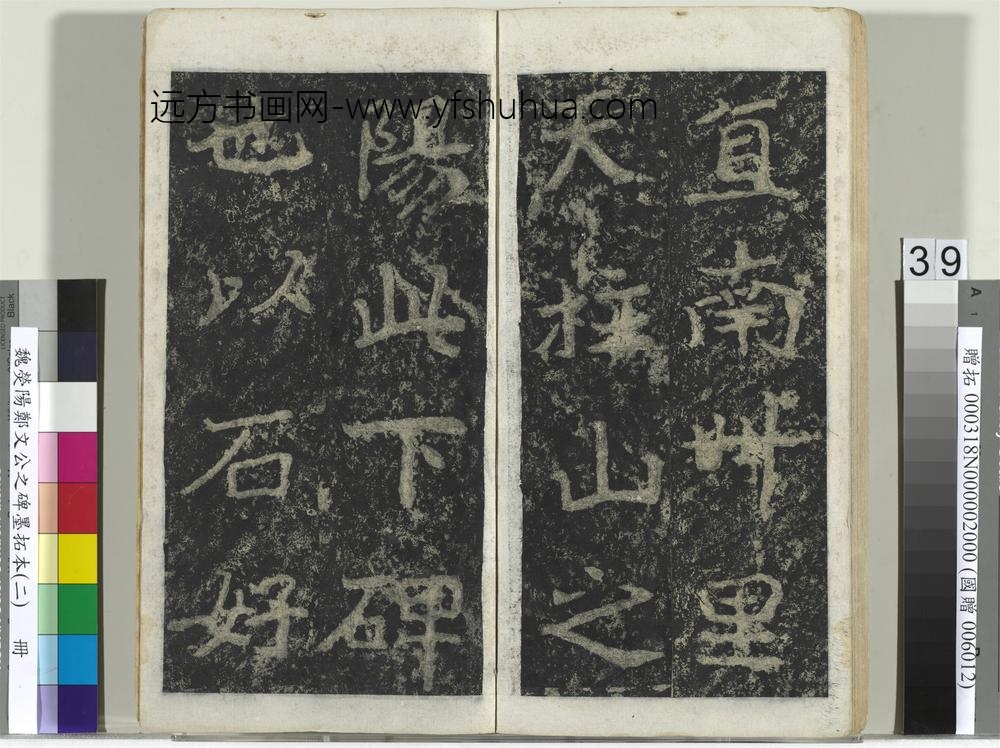 远方书画网-www.yfshuhua.com
直南卌里
天柱山之
陽此下碑
也以石好
39
魏滎陽鄭文公之碑墨拓本(二) 冊
贈拓 000318N000002000 (國贈 006012)
Black
A
1